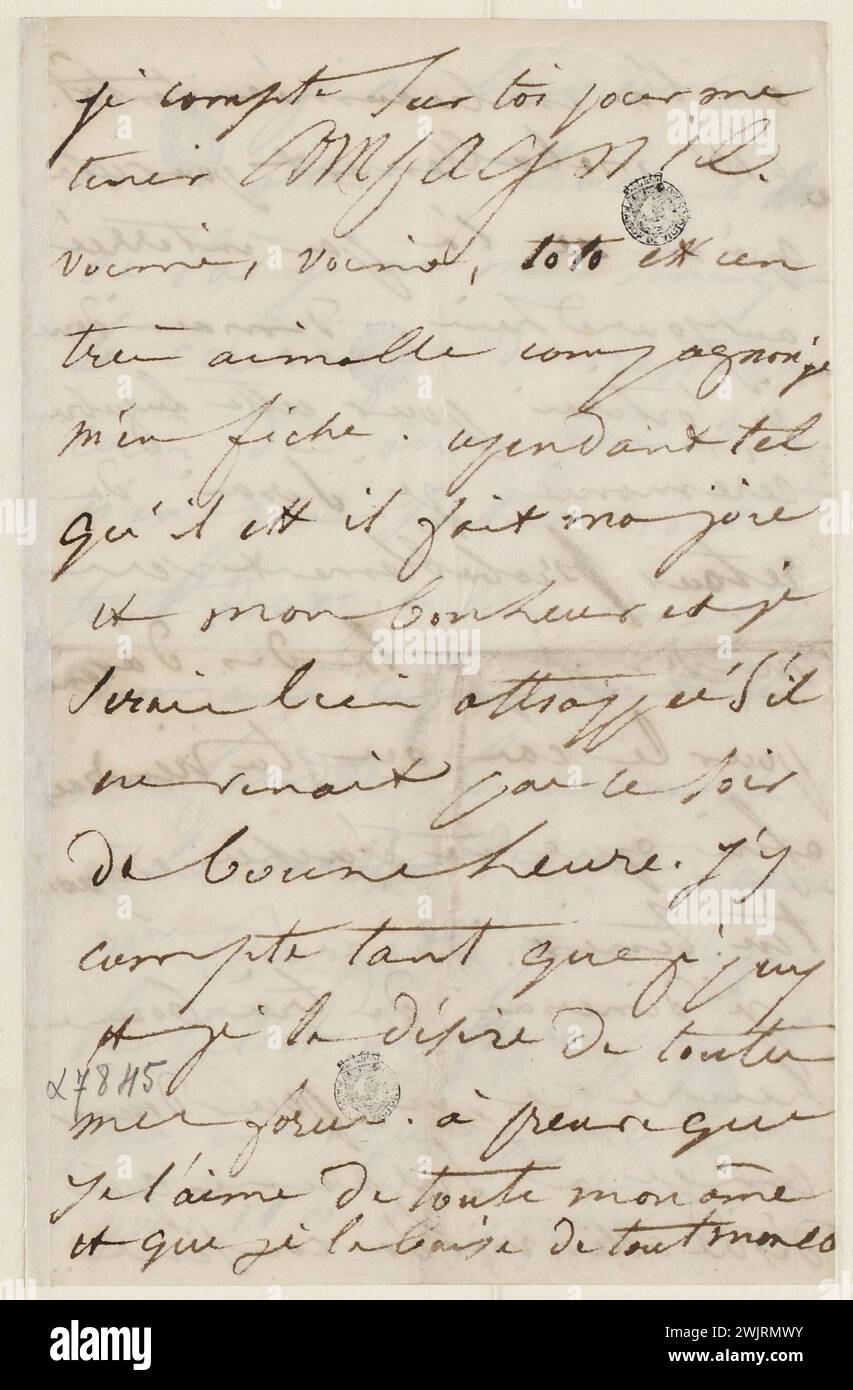 je compte sur toi pour me
tenir COMPAGNIE.
voime, voime, toto est un
très aimable compagnon je
m'en fiche. cependant tel
qu'il est il fait ma joie
et mon bonheur et je
serais bien attrappée s'il
ne venait pas ce soir
de bonne heure. j'y
compte tant que je puis
et je le désire de toutes
mes forces. à preuve que
je l'aime de toute mon âme
et que je le baise de tout mon co
α7845
alamy
Image ID: 2WJRMWY
www.alamy.com